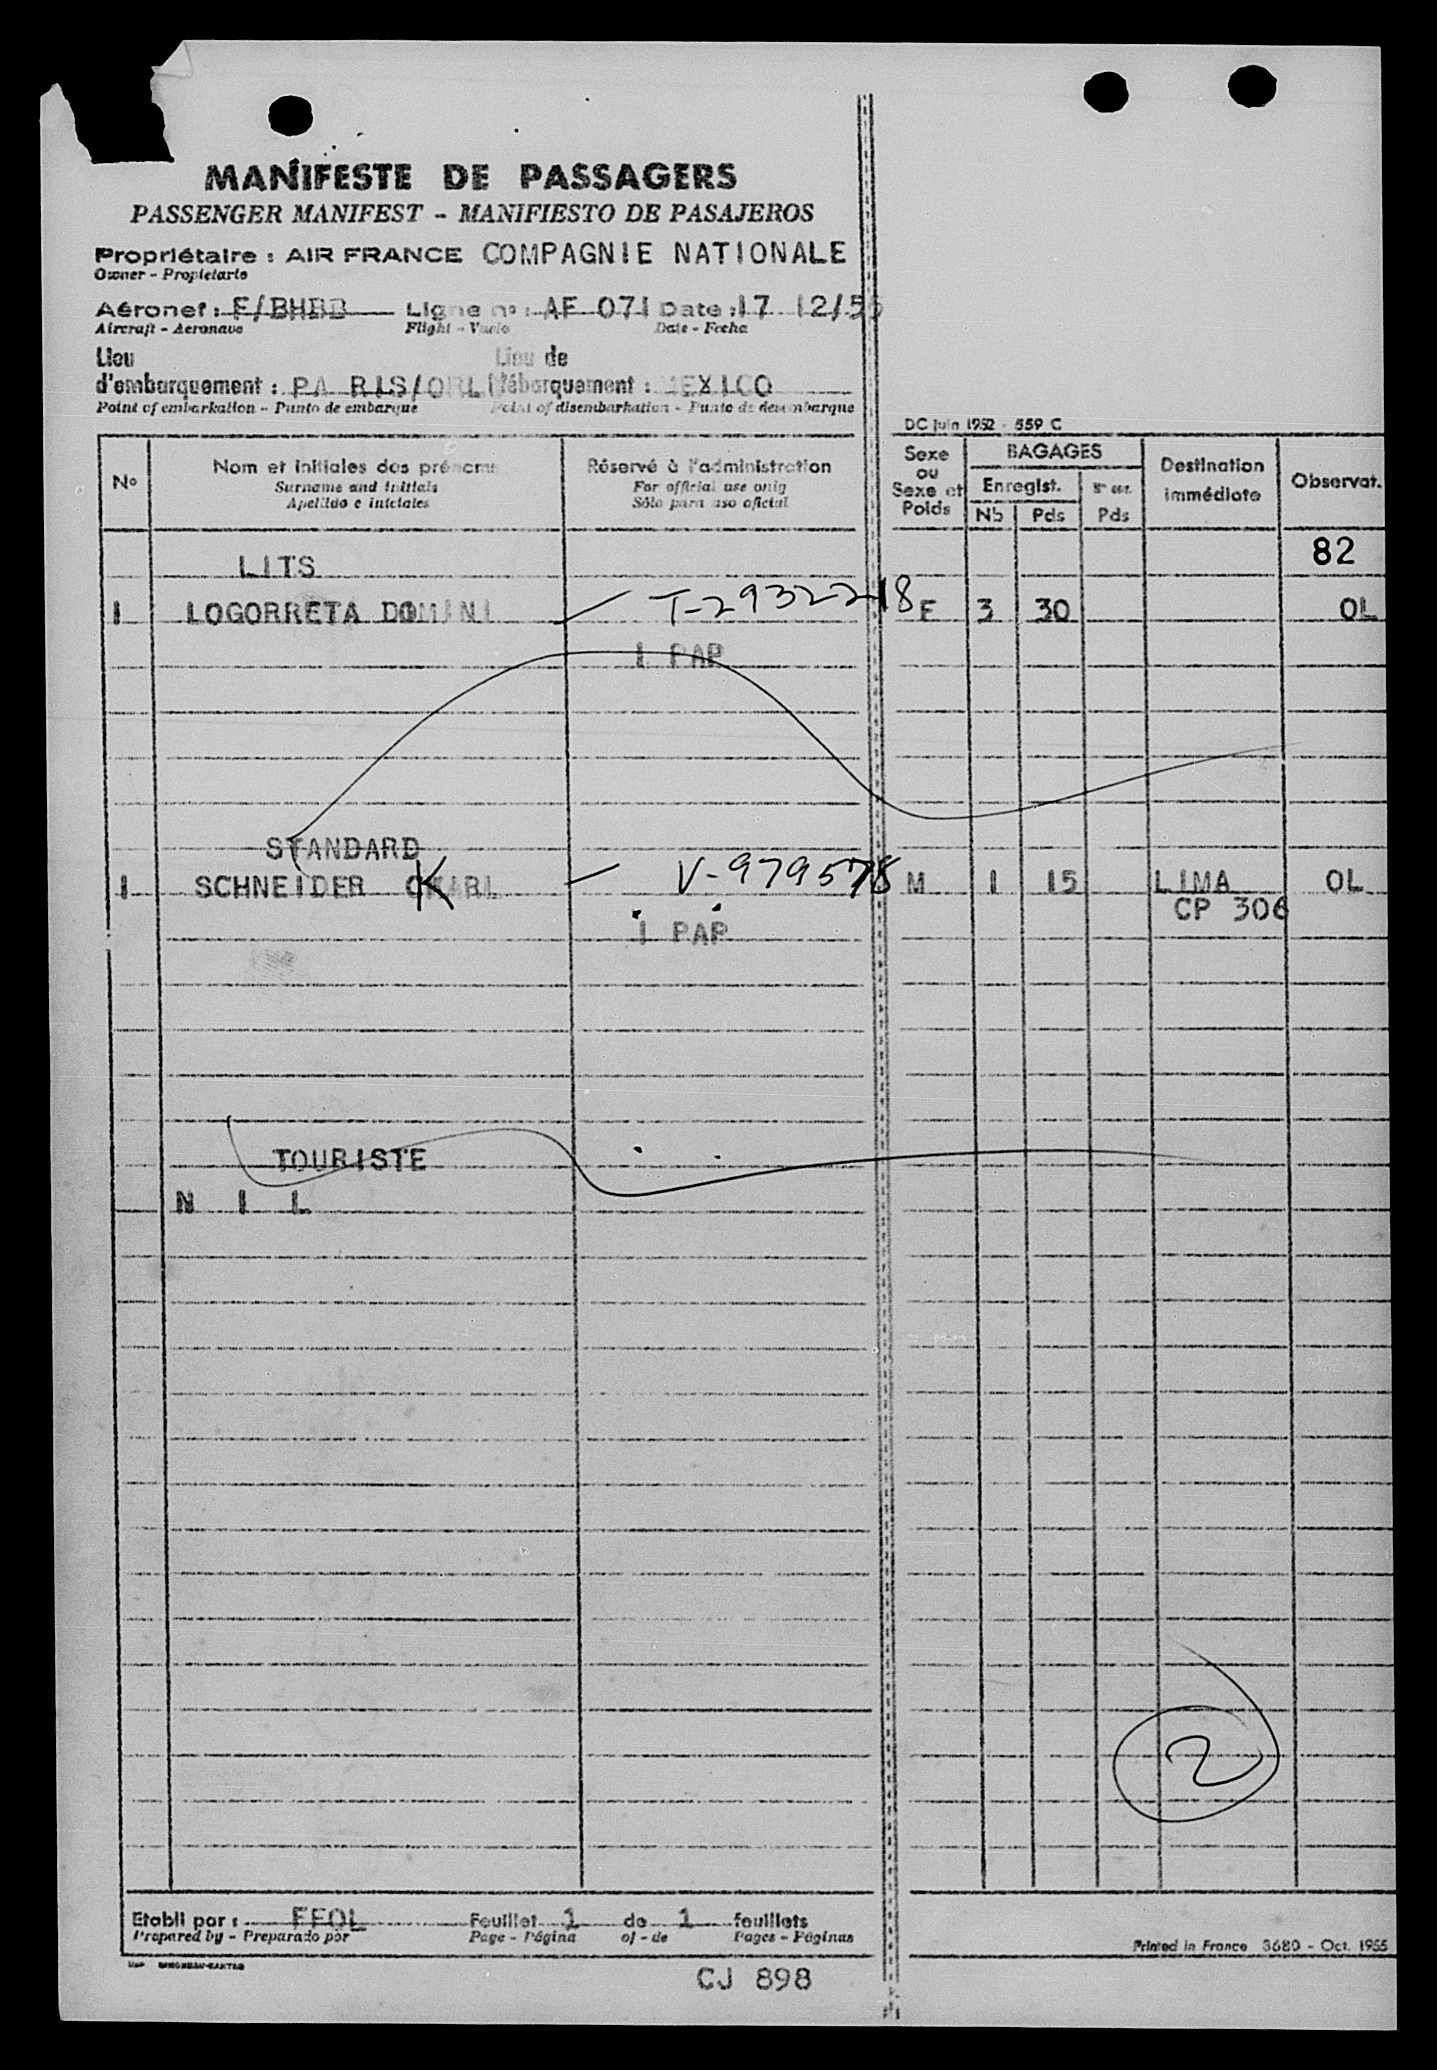 MANIFESTE DE PASSAGERS
PASSENGER MANIFEST - MANIFIESTO DE PASAJEROS
Propriétaire : AIR FRANCE COMPAGNIE NATIONALE
Owner - Propietario
Aéronef : F/BHBB Ligne no : AF 071 Date : 17 12/55
Aircraft - Aeronave Flight - Vuelo Date - Fecha
Lieu Lieu de
d'embarquement : PA RIS/ORL débarquement : MEXICO
Point of embarkation - Punto de embarque Point of disembarkation - Punto de desembarque
DC Juin 1952 - 559 C
No Nom et initiales des prénoms Réservé à l'administration Sexe ou Sexe et Poids BAGAGES Destination immédiate Observat.
Surname and initials For official use only Enregist.
Apellido e iniciales Sólo para uso oficial Nb Pds Pds
LITS 82
1 LOGORRETA DOMINI T-2932218 F 3 30 OL
1 PAP
STANDARD
1 SCHNEIDER K KARL V-979578 M 1 15 LIMA OL
CP 306
1 PAP
TOURISTE
N I L
2
Etabli par : FFOL Feuillet 1 de 1 feuillets
Prepared by - Preparado por Page - Página of - de Pages - Páginas
Printed in France 3680 - Oct. 1955
CJ 898